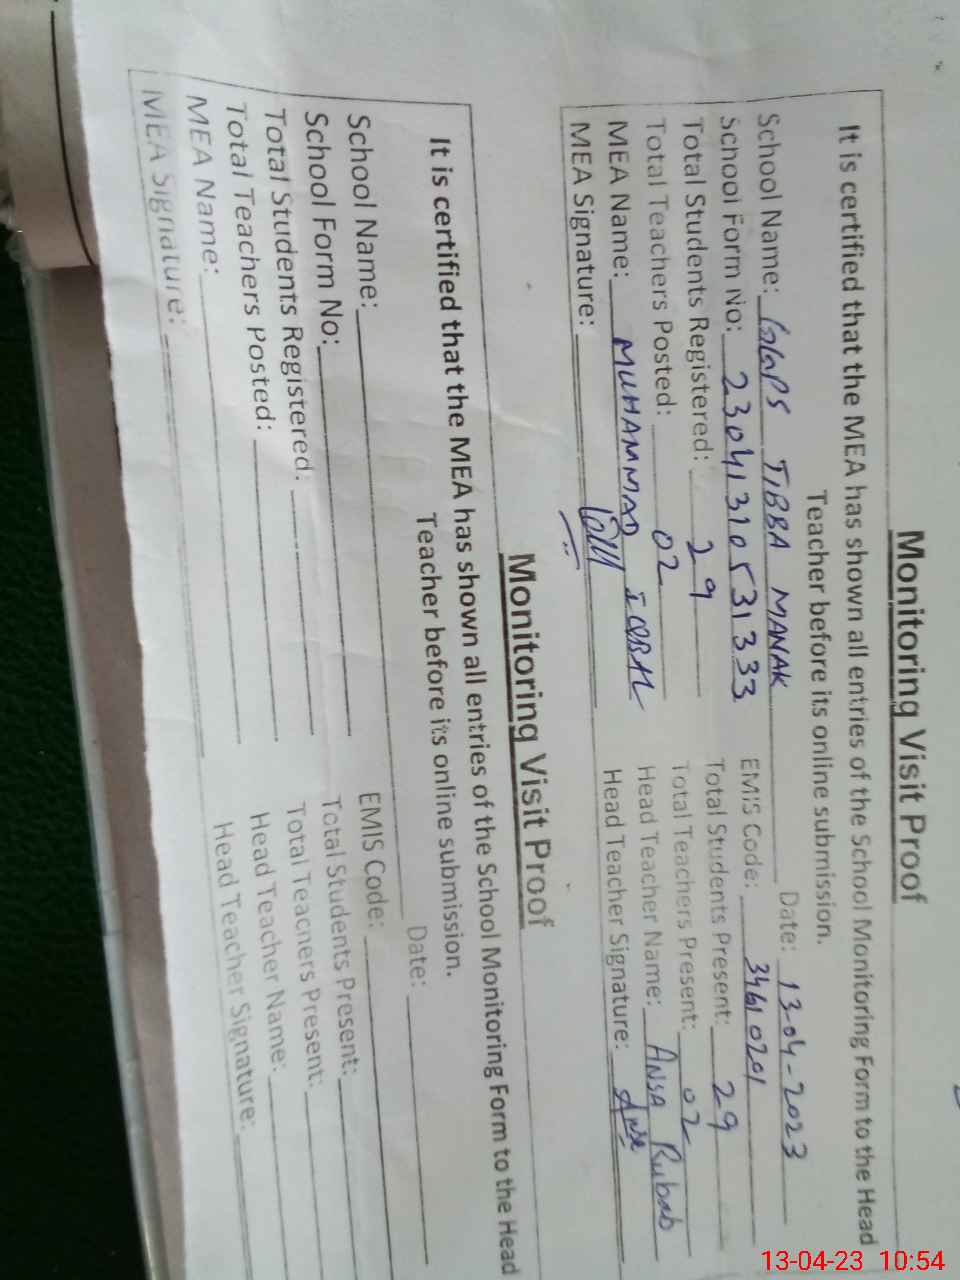 Monitoring Visit Proof
It is certified that the MEA has shown all entries of the School Monitoring Form to the Head
Teacher before its online submission.
School Name: GGPS TIBBA MANAK Date: 13-04-2023
School Form No: 23041310531333 EMIS Code: 34610201
Total Students Registered: 29 Total Students Present: 29
Total Teachers Posted: 02 Total Teachers Present: 02
MEA Name: MUHAMMAD IQBAL Head Teacher Name: Ansa Rubab
MEA Signature: Head Teacher Signature: Ansa
Monitoring Visit Proof
It is certified that the MEA has shown all entries of the School Monitoring Form to the Head
Teacher before its online submission.
School Name: Date:
School Form No: EMIS Code:
Total Students Registered: Total Students Present:
Total Teachers Posted: Total Teachers Present:
MEA Name: Head Teacher Name:
MEA Signature: Head Teacher Signature:
13-04-23 10:54